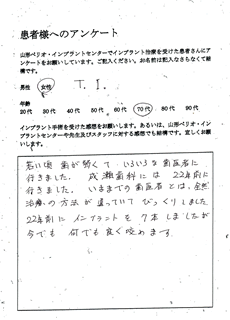 患者様へのアンケート
山形ペリオ・インプラントセンターでインプラント治療を受けた患者さんにア
ンケートをお願いしています。ご記入ください。お名前は記入なさらなくて結
構です。
男性 女性 T. I.
年齢
20代 30代 40代 50代 60代 70代 80代 90代
インプラント手術を受けた感想をお願いします。あるいは、山形ペリオ・イン
プラントセンターや先生及びスタッフに対する感想でも結構です。宜しくお願
いします。
若い頃 歯が弱くて いろいろな歯医者に
行きました。 成瀬歯科には 22年前に
行きました。 いままでの歯医者とは、全然
治療の方法が違っていて びっくりしました
22年前に インプラントを 7本しましたが
今でも 何でも良く咬めます。